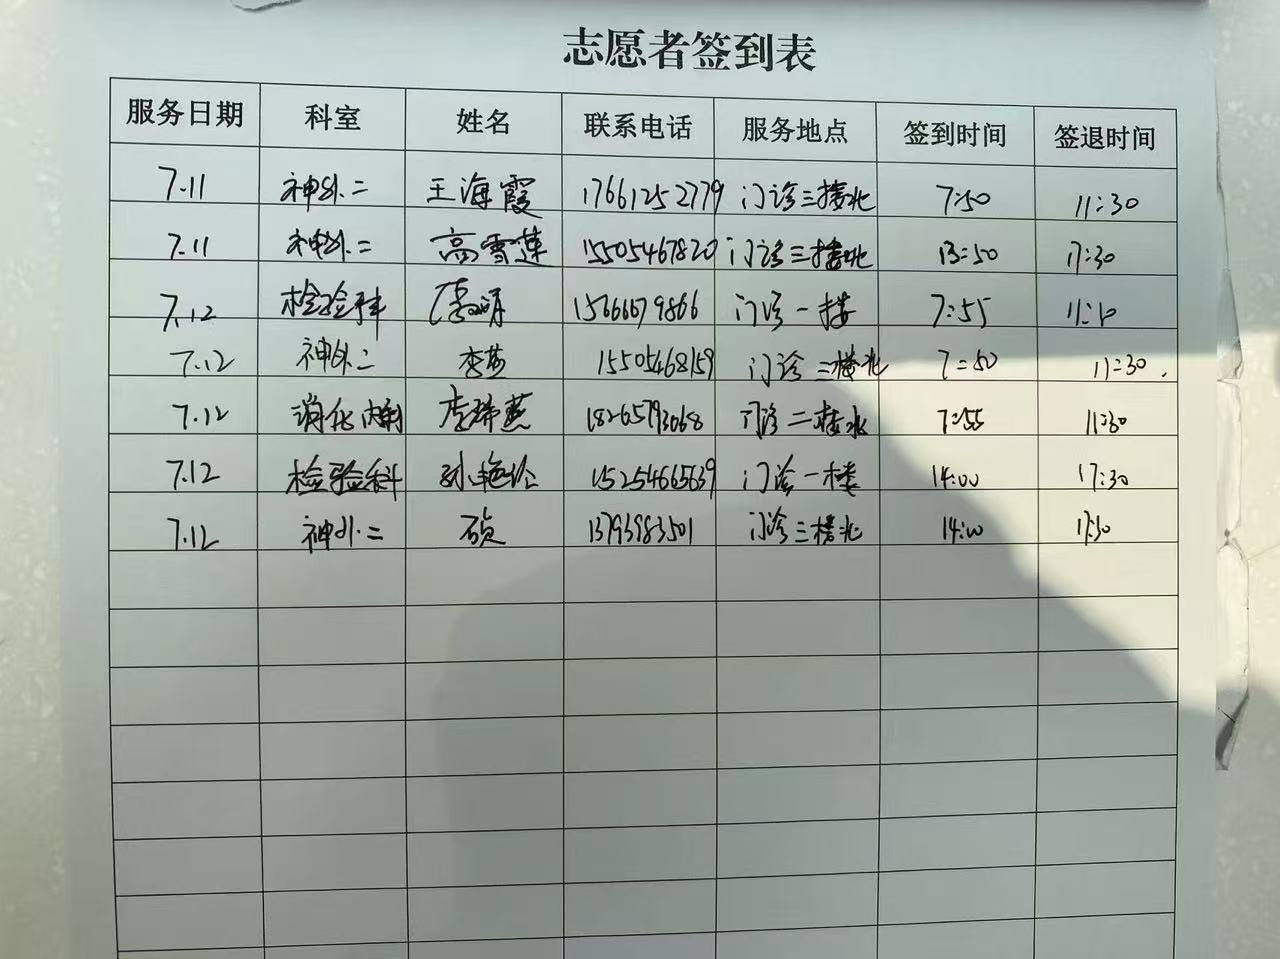 志愿者签到表
服务日期 科室 姓名 联系电话 服务地点 签到时间 签退时间
7.11 神外二 王海霞 17661252779 门诊三楼北 7:50 11:30
7.11 神外二 高雪莲 15505467820 门诊三楼北 13:50 17:30
7.12 检验科 门诊一楼 7:55
7.12 神外二 李燕 15505468159 门诊三楼北 7:50 11:30.
7.12 消化内科 李瑞燕 18265793068 门诊二楼 7:55 11:30
7.12 检验科 15254665639 门诊一楼 14:00 17:30
7.12 神外二 13793983501 门诊三楼北 14:00 17:30